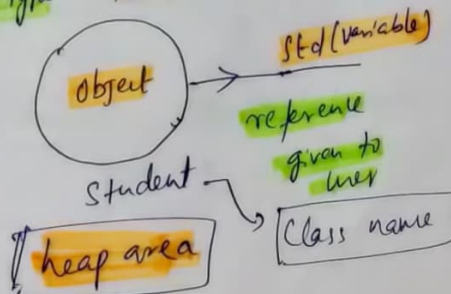 Std (variable)
Object
reference
given to
user
Student
Class name
heap area